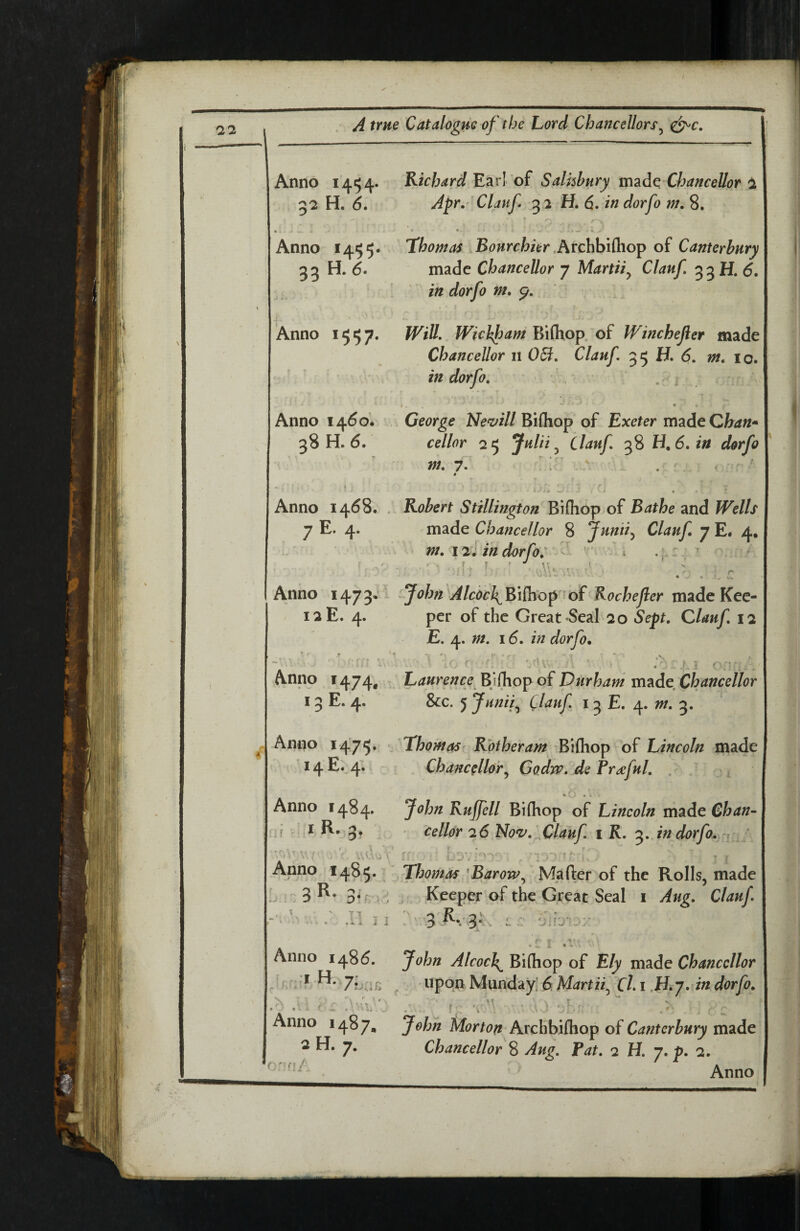 22
A true Catalogue of the Lord Chancellors, &c.
Anno 1454. Richard Earl of Salisbury made Chancellor 2
32 H. 6. Apr. Clauſ. 32 H. 6. in dorſo m. 8.
Anno 1455. Thomas Bourchier Archbiſhop of Canterbury
33 H. 6. made Chancellor 7 Martii, Clauſ. 33 H. 6.
in dorſo m. 9.
Anno 1557. Will. Wickham Biſhop of Wincheſter made
Chancellor 11 Oct. Clauſ. 35 H. 6. m. 10.
in dorſo.
Anno 1460. George Nevill Biſhop of Exeter made Chan-
38 H. 6. cellor 25 Julii, Clauſ. 38 H. 6. in dorſo
m. 7.
Anno 1468. Robert Stillington Biſhop of Bathe and Wells
7 E. 4. made Chancellor 8 Junii, Clauſ. 7 E. 4.
m. 12. in dorſo.
Anno 1473. John Alcock Biſhop of Rocheſter made Kee-
12 E. 4. per of the Great Seal 20 Sept. Clauſ. 12
E. 4. m. 16. in dorſo.
Anno 1474. Laurence Biſhop of Durham made Chancellor
13 E. 4. &c. 5 Junii, Clauſ. 13 E. 4. m. 3.
Anno 1475. Thomas Rotheram Biſhop of Lincoln made
14 E. 4. Chancellor, Godw. de Præſul.
Anno 1484. John Ruſſell Biſhop of Lincoln made Chan-
1 R. 3. cellor 26 Nov. Clauſ. 1 R. 3. in dorſo.
Anno 1485. Thomas Barow, Maſter of the Rolls, made
3 R. 3. Keeper of the Great Seal 1 Aug. Clauſ.
3 R. 3.
Anno 1486. John Alcock Biſhop of Ely made Chancellor
1 H. 7. upon Munday 6 Martii, Cl. 1 H. 7. in dorſo.
Anno 1487. John Morton Archbiſhop of Canterbury made
2 H. 7. Chancellor 8 Aug. Pat. 2 H. 7. p. 2.
Anno